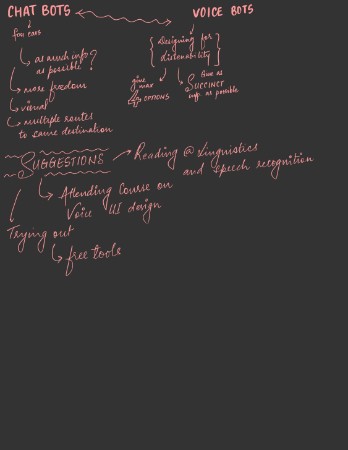 CHAT BOTS
VOICE BOTS
as much info?
as possible
more freedom
visual
multiple routes
to same destination
Designing for
listenability
give
max
OPTIONS
Give as
SUCCINCT
info as possible
SUGGESTIONS
Reading @ Linguistics
and speech recognition
Attending Course on
Voice UI design
Trying out
free tools